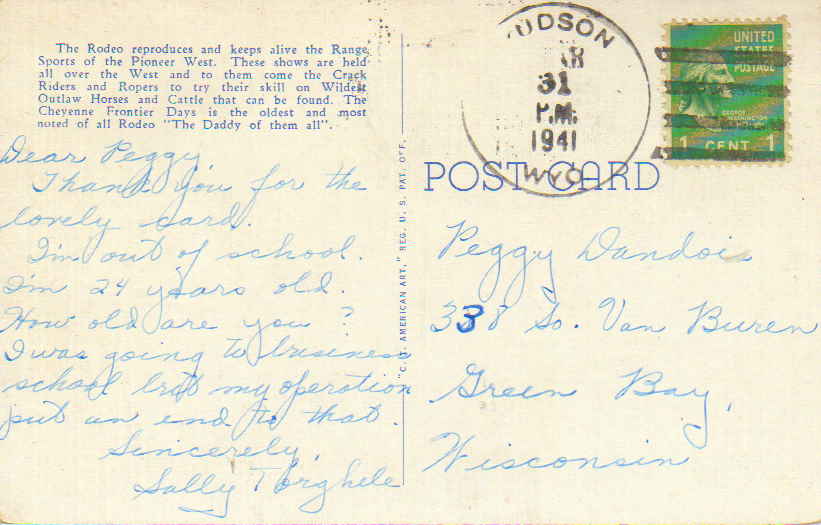 The Rodeo reproduces and keeps alive the Range
Sports of the Pioneer West. These shows are held
all over the West and to them come the Crack
Riders and Ropers to try their skill on Wildest
Outlaw Horses and Cattle that can be found. The
Cheyenne Frontier Days is the oldest and most
noted of all Rodeo "The Daddy of them all".
Dear Peggy,
Thank you for the
lovely card.
I'm out of school.
I'm 24 years old.
How old are you?
I was going to business
school but my operation
put an end to that.
Sincerely,
Sally Torghele
"C. T. AMERICAN ART," REG. U. S. PAT. OFF.
UDSON
AR
31
P.M.
1941
WYO.
UNITED
STATES
POSTAGE
GEORGE
WASHINGTON
1 CENT 1
POST CARD
Peggy Dandois
338 So. Van Buren
Green Bay,
Wisconsin